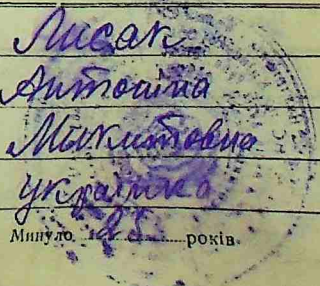 Лисак
Антоніна
Микитовна
українка
Минуло 25 років